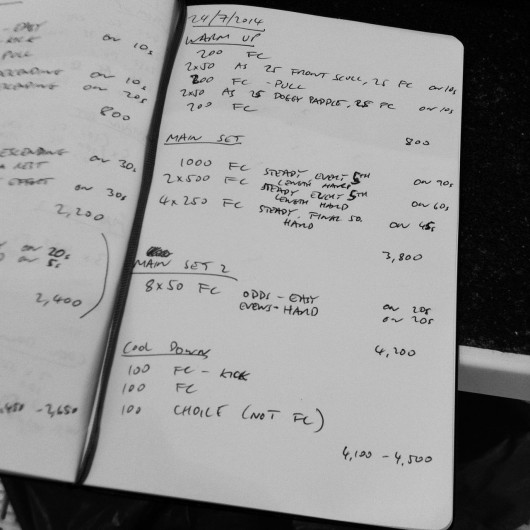 - EASY
- KICK on 10s
- PULL
DESCENDING on 10s
on 20s
800
DESCENDING on 30s
on 30s
2,200
on 20s
on 5s
2,400
- 2,650
24/7/2014
WARM UP
200 FC
2x50 AS 25 FRONT SCULL, 25 FC on 10s
200 FC - PULL
2x50 AS 25 DOGGY PADDLE, 25 FC on 10s
200 FC
800
MAIN SET
1000 FC STEADY EVERY 5TH LENGTH HARD on 70s
2x500 FC STEADY EVERY 5TH LENGTH HARD on 60s
4x250 FC STEADY - FINAL 50 HARD on 45s
3,800
MAIN SET 2
8x50 FC ODDS - EASY on 20s
EVENS - HARD on 20s
4,200
Cool Down
100 FC - KICK
100 FC
100 CHOICE (NOT FC)
4,100 - 4,500